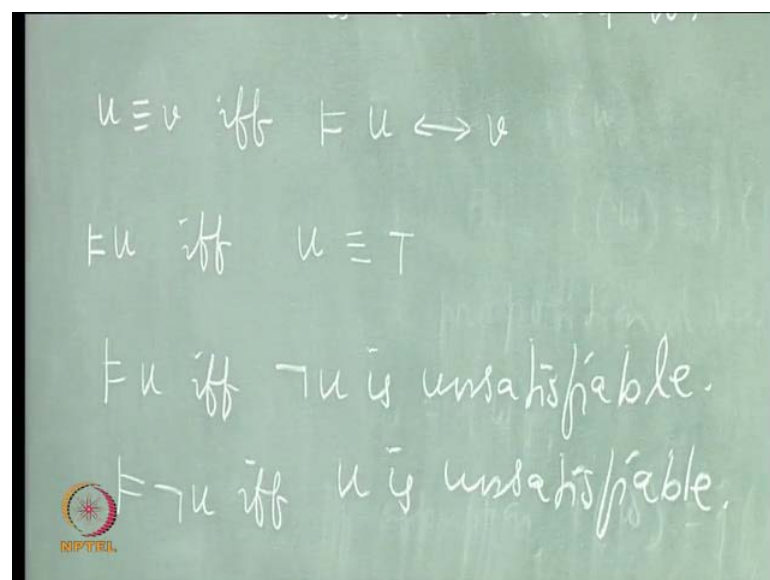 u ≡ v iff ⊨ u ↔ v
⊨ u iff u ≡ ⊤
⊨ u iff ¬u is unsatisfiable.
⊨ ¬u iff u is unsatisfiable.
NPTEL